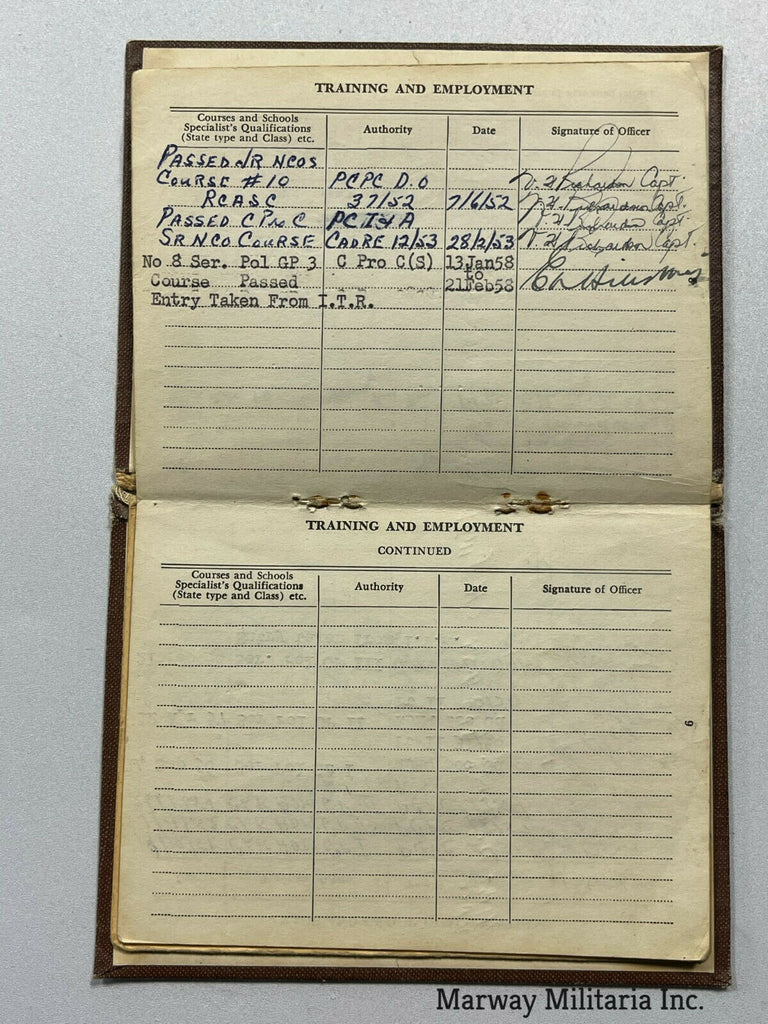 TRAINING AND EMPLOYMENT
Courses and Schools
Specialist's Qualifications
(State type and Class) etc.
Authority
Date
Signature of Officer
PASSED JR NCOS
COURSE #10 PCPC D.O Capt.
RCASC 37/52 7/6/52 Capt.
PASSED C PRO C PC I & A Capt.
SR NCO COURSE CADRE 12/53 28/2/53 Capt.
No 8 Ser. Pol GP 3 C Pro C(S) 13Jan58
to
Course Passed 21Feb58
Entry Taken From I.T.R.
TRAINING AND EMPLOYMENT
CONTINUED
Courses and Schools
Specialist's Qualifications
(State type and Class) etc.
Authority
Date
Signature of Officer
9
Marway Militaria Inc.